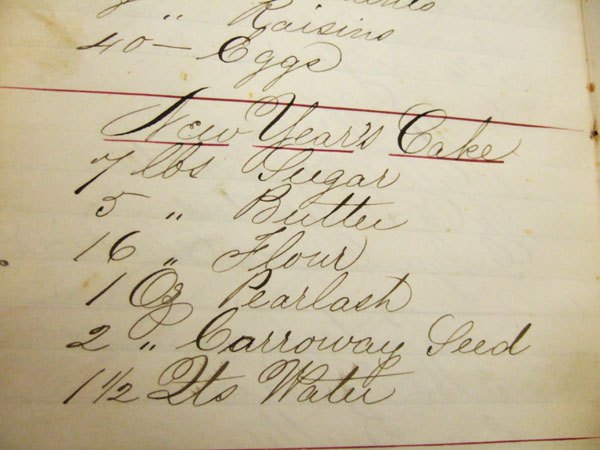 " Raisins
40 — Eggs
New Year's Cake
7 lbs Sugar
5 " Butter
16 " Flour
1 Oz Pearlash
2 " Carroway Seed
1 1/2 Qts Water